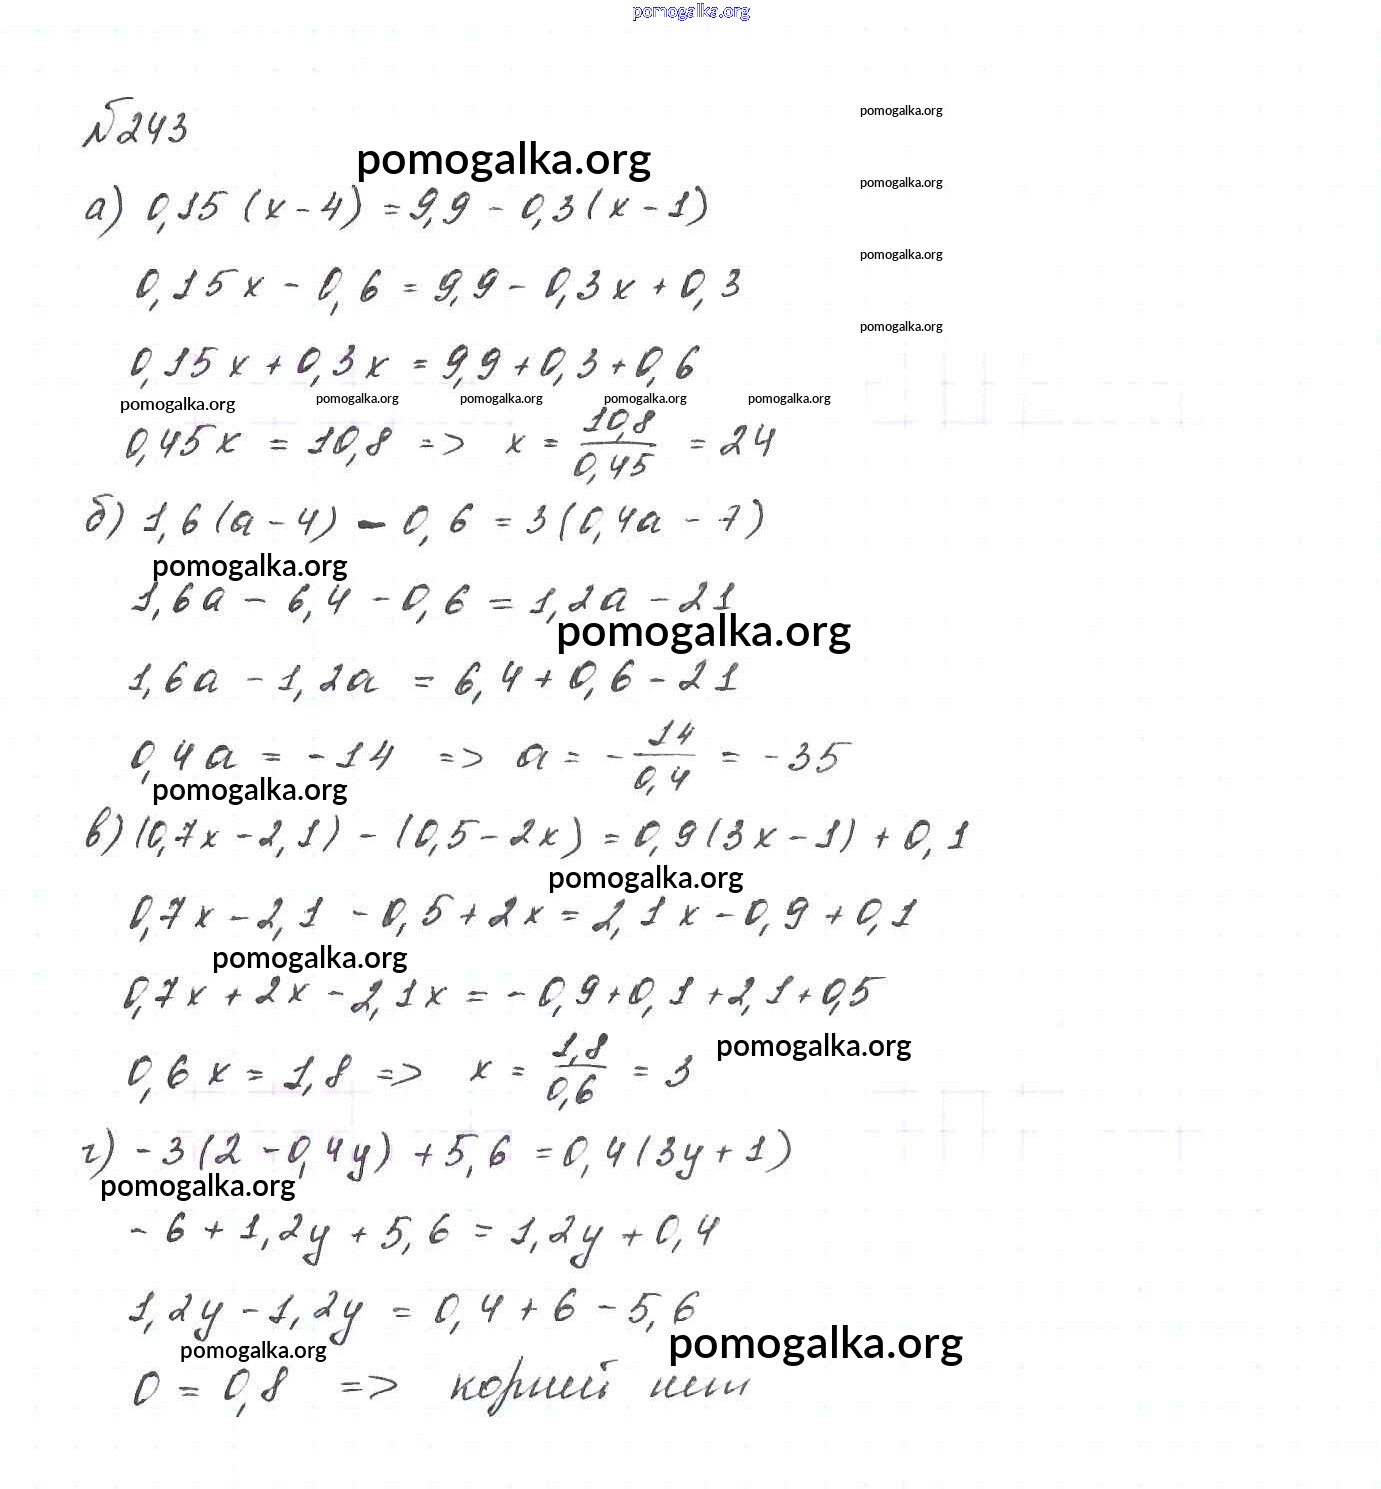 pomogalka.org
№243
pomogalka.org
pomogalka.org
а) 0,15 (x - 4) = 9,9 - 0,3 (x - 1)
pomogalka.org
pomogalka.org
0,15x - 0,6 = 9,9 - 0,3x + 0,3
pomogalka.org
0,15x + 0,3x = 9,9 + 0,3 + 0,6
pomogalka.org pomogalka.org pomogalka.org pomogalka.org pomogalka.org
0,45x = 10,8 => x = 10,8/0,45 = 24
б) 1,6 (a - 4) - 0,6 = 3 (0,4a - 7)
pomogalka.org
1,6a - 6,4 - 0,6 = 1,2a - 21
pomogalka.org
1,6a - 1,2a = 6,4 + 0,6 - 21
0,4a = -14 => a = - 14/0,4 = -35
pomogalka.org
в) (0,7x - 2,1) - (0,5 - 2x) = 0,9 (3x - 1) + 0,1
pomogalka.org
0,7x - 2,1 - 0,5 + 2x = 2,1x - 0,9 + 0,1
pomogalka.org
0,7x + 2x - 2,1x = - 0,9 + 0,1 + 2,1 + 0,5
pomogalka.org
0,6x = 1,8 => x = 1,8/0,6 = 3
г) -3 (2 - 0,4y) + 5,6 = 0,4 (3y + 1)
pomogalka.org
- 6 + 1,2y + 5,6 = 1,2y + 0,4
1,2y - 1,2y = 0,4 + 6 - 5,6
pomogalka.org
pomogalka.org
0 = 0,8 => корней нет